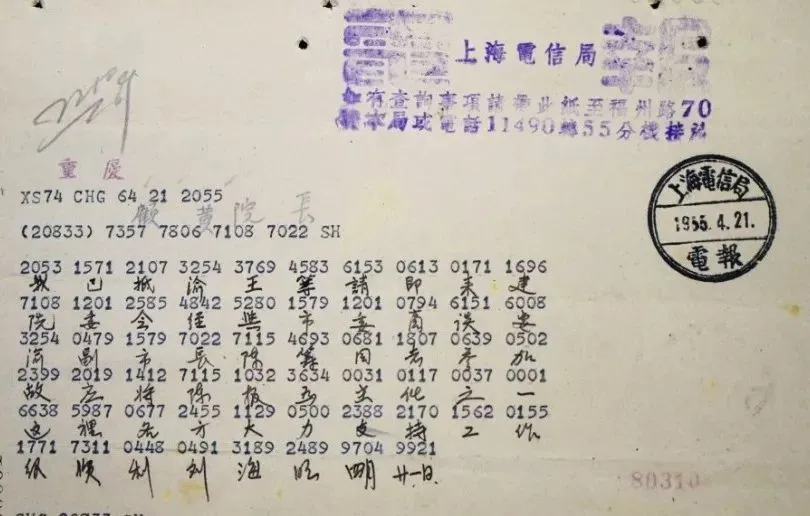 上海電信局
如有查詢事項請帶此紙至福州路70
號本局或電話11490轉55分機接洽
重慶
XS74 CHG 64 21 2055
顧黄院長
(20833) 7357 7806 7108 7022 SH
上海電信局
1955.4.21.
電報
2053 1571 2107 3254 3769 4583 6153 0613 0171 1696
我已抵渝王等請即来建
7108 1201 2585 4842 5280 1579 1201 0794 6151 6008
院委会經與市委商談安
3254 0479 1579 7022 7115 4693 0681 1807 0639 0502
渝副市長陳築同志参加
2399 2019 1412 7115 1032 3634 0031 0117 0037 0001
故应將陳 主 之一
6638 5987 0677 2455 1129 0500 2388 2170 1562 0155
這裡各方大力支持工作
1771 7311 0448 0491 3189 2489 9704 9921
很順利 海 四月 廿一日
80310